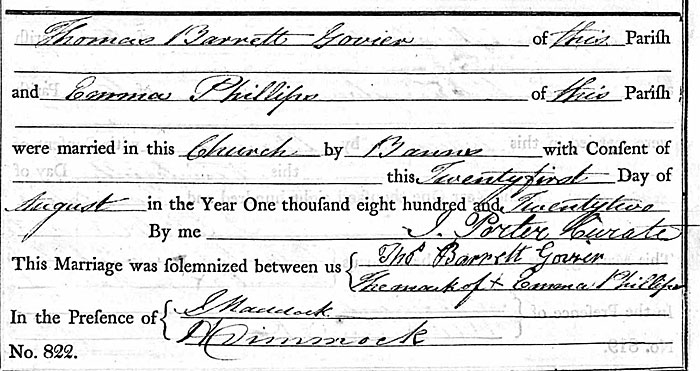 Thomas Barrett Govier of this Parish
and Emma Phillips of this Parish
were married in this Church by Banns with Consent of
this Twentyfirst Day of
August in the Year One thousand eight hundred and Twentytwo
By me J. Porter Curate
This Marriage was solemnized between us { Thos Barrett Govier
The mark of + Emma Phillips
In the Presence of { J Maddock
Dimmock
No. 822.